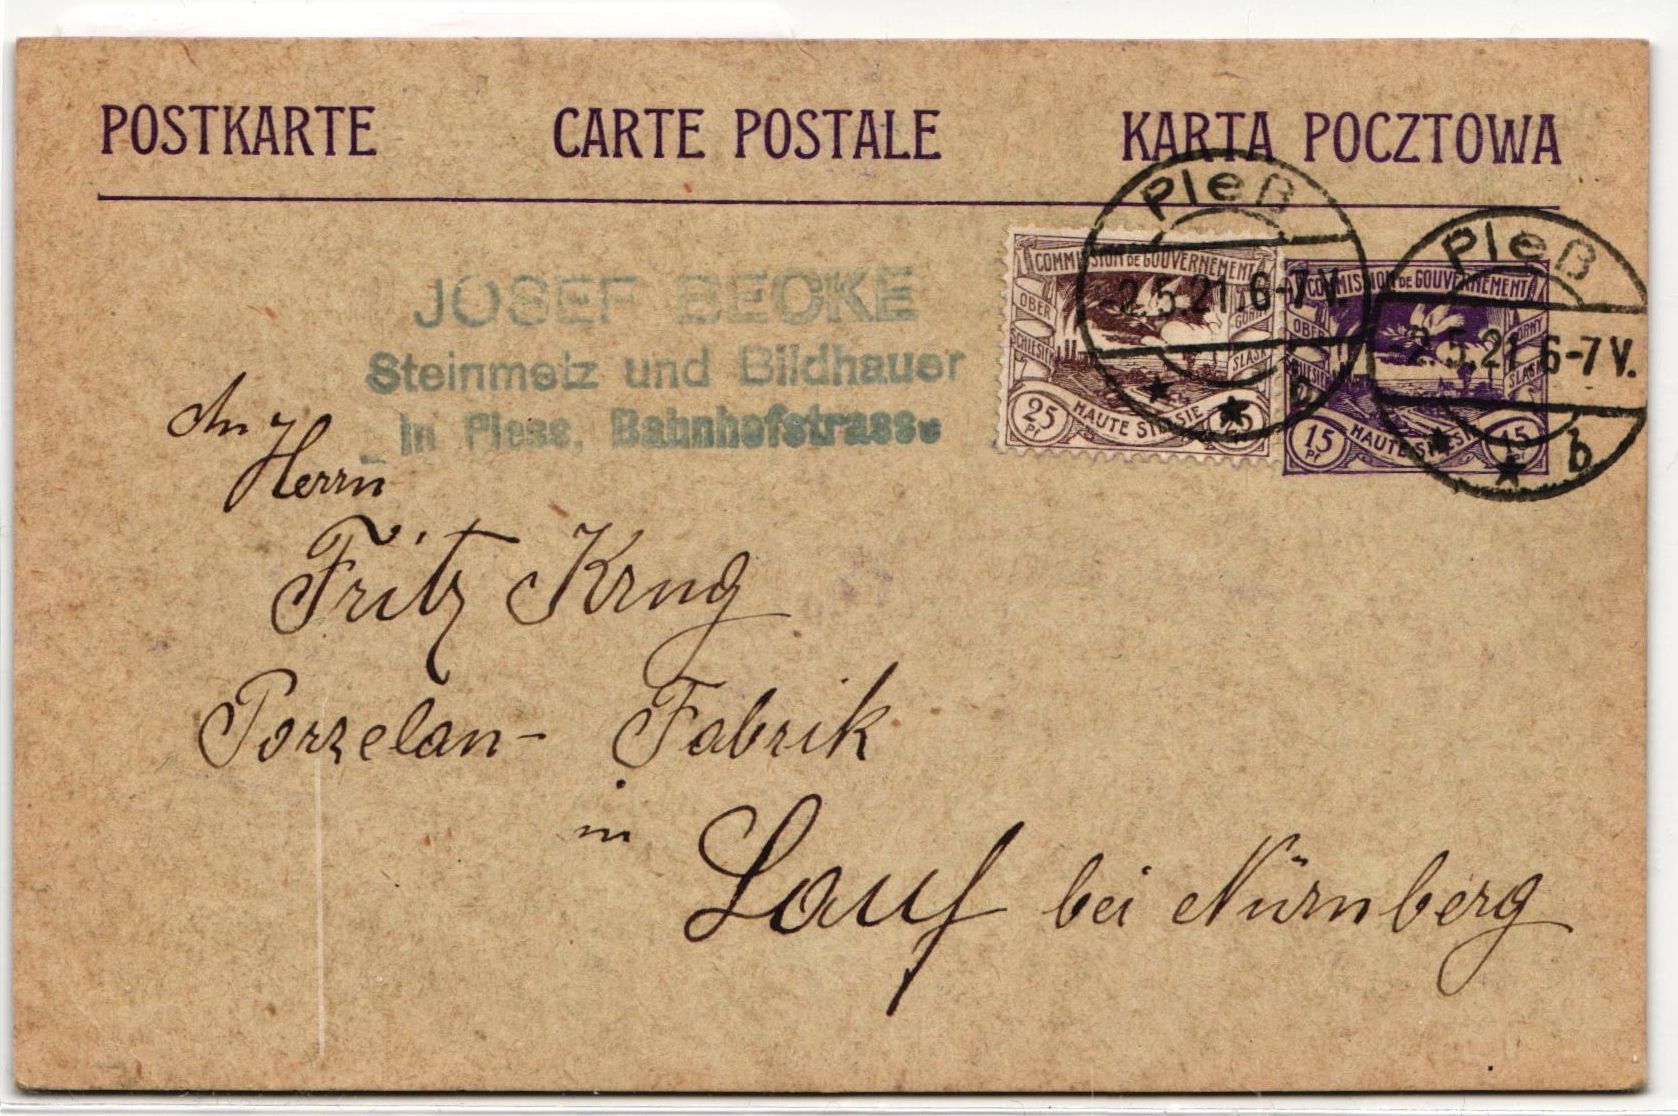 POSTKARTE CARTE POSTALE KARTA POCZTOWA
JOSEF BECKE
Steinmetz und Bildhauer
in Pless, Bahnhofstrasse
COMMISSION DE GOUVERNEMENT
OBER SCHLESIEN
GÓRNY ŚLĄSK
25 Pf HAUTE SILÉSIE 25
COMMISSION DE GOUVERNEMENT
OBER SCHLESIEN
GÓRNY ŚLĄSK
15 Pf HAUTE SILÉSIE 15 Pf
Pleß
-2.5.21 6-7 V.
Pleß
-2.5.21 6-7 V.
b
An
Herrn
Fritz Krug
Porzelan- Fabrik
in Lauf bei Nürnberg